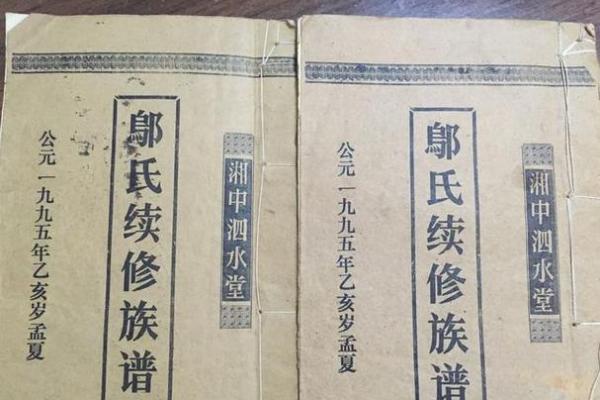 湘中泗水堂
鄔氏续修族谱
公元一九九五年乙亥岁孟夏
湘中泗水堂
鄔氏续修族谱
公元一九九五年乙亥岁孟夏